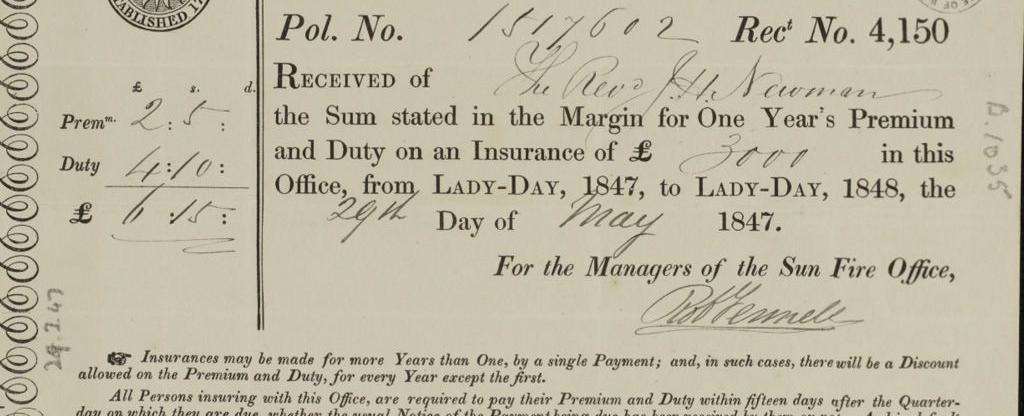 ESTABLISHED 17
Pol. No. 1517602 Rec^t No. 4,150
£ s. d.
Prem^m. 2 : 5 :
Duty 4 : 10 :
£ 6 : 15 :
RECEIVED of The Rev^d J. H. Newman
the Sum stated in the Margin for One Year's Premium
and Duty on an Insurance of £ 3000 in this
Office, from LADY-DAY, 1847, to LADY-DAY, 1848, the
29th Day of May 1847.
For the Managers of the Sun Fire Office,
Insurances may be made for more Years than One, by a single Payment; and, in such cases, there will be a Discount
allowed on the Premium and Duty, for every Year except the first.
All Persons insuring with this Office, are required to pay their Premium and Duty within fifteen days after the Quarter-
day on which they are due, whether the usual Notice of the Payment being due has been received by them or not.
D. 1035